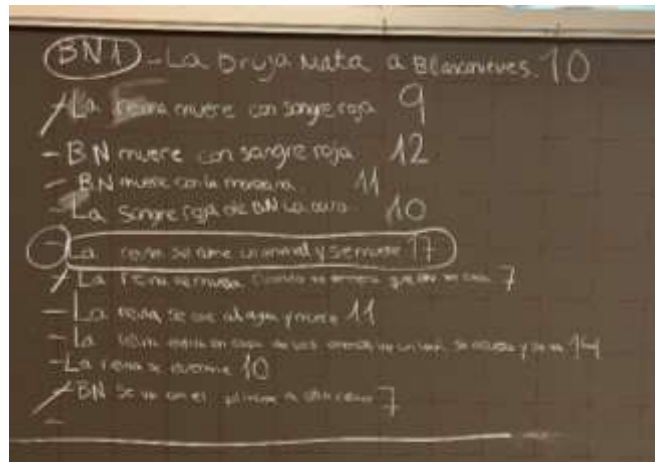 BN1 - La bruja mata a Blancanieves. 10
- La reina muere con sangre roja 9
- BN muere con sangre roja 12
- BN muere con la manzana 11
- La sangre roja de BN la cura 10
- La reina se come un animal y se muere 17
- La reina se muda cuando se 7
- La reina se cae al agua y muere 11
- La reina entra en casa de los un y se va 14
- La reina se duerme 10
- BN se va con el príncipe a 7
-